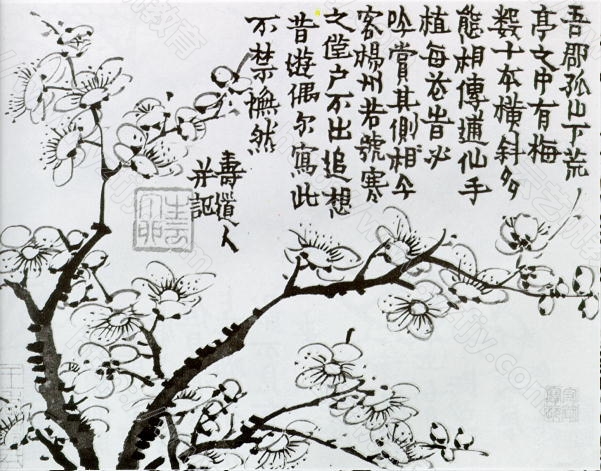 吾郡孤山下荒
亭之中有梅
數十本橫斜多
態相傳逋仙手
植每花旹必
吟賞其側今
客楊州若號寒
之戶不出追想
昔遊偶尔寫此
不禁憮然
壽道人
并記